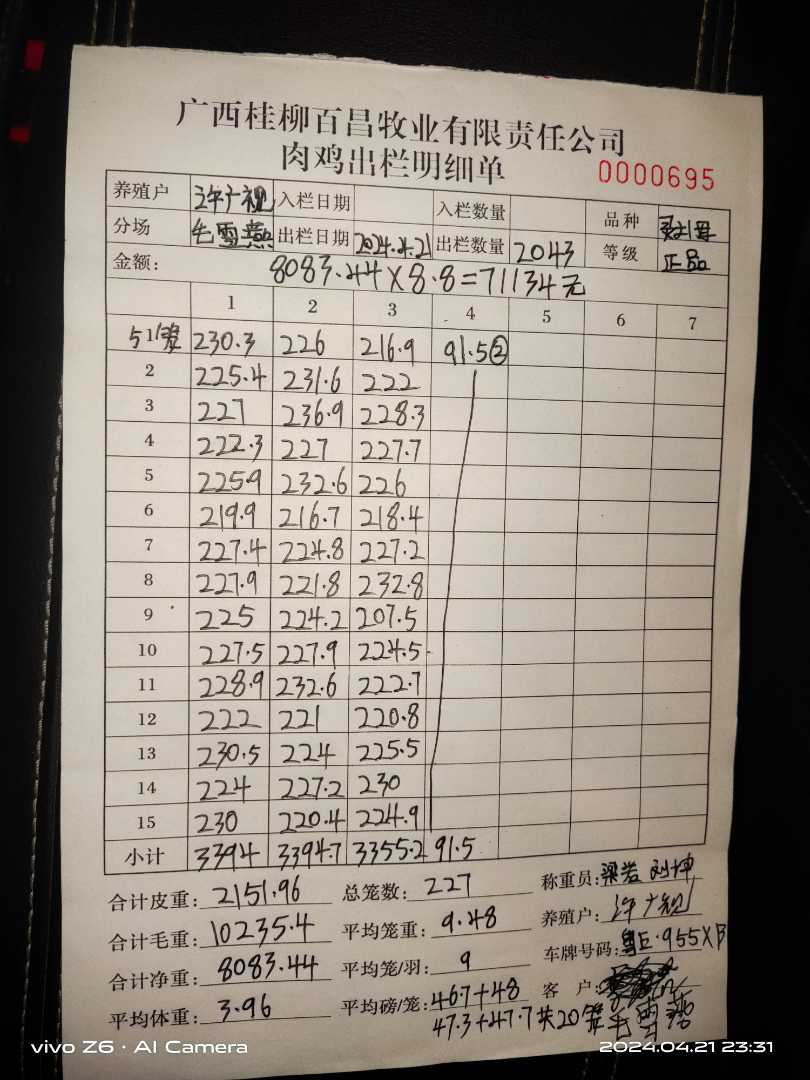 广西桂柳百昌牧业有限责任公司
肉鸡出栏明细单 0000695
养殖户 许广视 入栏日期 入栏数量 品种
分场 毛雪燕 出栏日期 2024.4.21 出栏数量 2043 等级 正品
金额: 8083.44×8.8=71134元
1 2 3 4 5 6 7
5 1笼 230.3 226 216.9 91.5②
2 225.4 231.6 222
3 227 236.9 228.3
4 222.3 227 227.7
5 225.9 232.6 226
6 219.9 216.7 218.4
7 227.4 224.8 227.2
8 227.9 221.8 232.8
9 225 224.2 207.5
10 227.5 227.9 224.5
11 228.9 232.6 222.7
12 222 221 220.8
13 230.5 224 225.5
14 224 227.2 230
15 230 220.4 224.9
小计 3394 3394.7 3355.2 91.5
合计皮重: 2151.96 总笼数: 227 称重员: 梁岩 刘坤
合计毛重: 10235.4 平均笼重: 9.48 养殖户: 许广视
合计净重: 8083.44 平均笼/羽: 9 车牌号码: 955XB
平均体重: 3.96 平均磅/笼: 46.7+48 客户:
47.3+47.7共20笼毛雪燕
vivo Z6 · AI Camera 2024.04.21 23:31